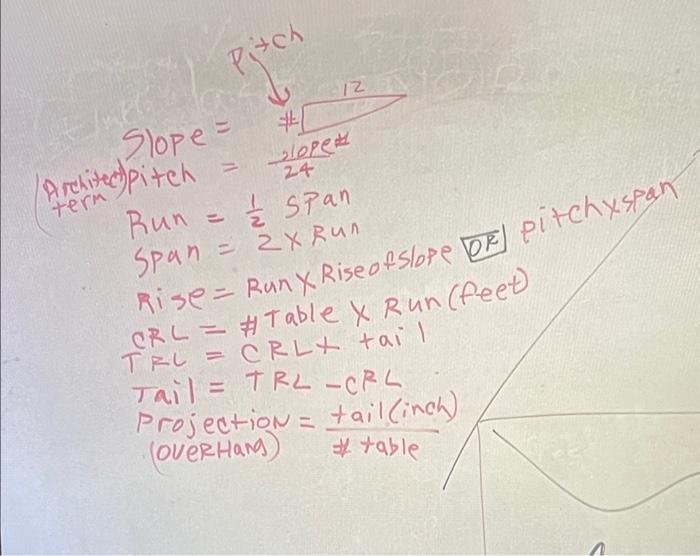 Pitch
12
Slope = #
(Architect) pitch = slope#/24
term
Run = 1/2 Span
Span = 2 x Run
Rise = Run x Rise of Slope OR pitch x span
CRL = # Table x Run (feet)
TRL = CRL + tail
Tail = TRL - CRL
Projection = tail (inch)
(OVERHANG) # table